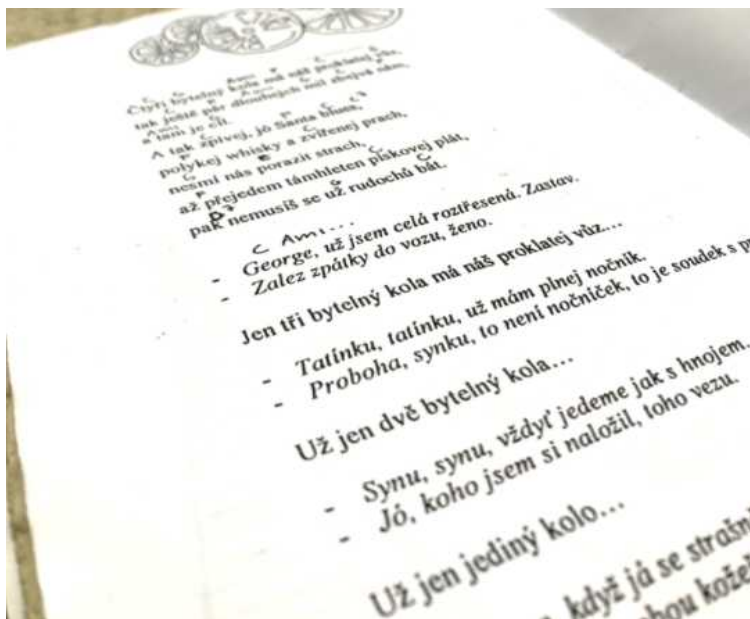 C G Ami F C G
Čtyři bytelný kola má náš proklatej vůz,
C F Ami C G F
tak ještě pár dlouhejch mil zbejvá nám,
Ami C
a tam je cíl.
F C C7
A tak zpívej, jó Santa blues,
F C
polykej whisky a zvířenej prach,
G
nesmí nás porazit strach,
F C
až přejedem támhleten pískovej plát,
D7 G C
pak nemusíš se už rudochů bát.
C Ami...
- George, už jsem celá roztřesená. Zastav.
- Zalez zpátky do vozu, ženo.
Jen tři bytelný kola má náš proklatej vůz...
- Tatínku, tatínku, už mám plnej nočník.
- Proboha, synku, to není nočníček, to je soudek s
Už jen dvě bytelný kola...
- Synu, synu, vždyť jedeme jak s hnojem.
- Jó, koho jsem si naložil, toho vezu.
Už jen jediný kolo...
když já se